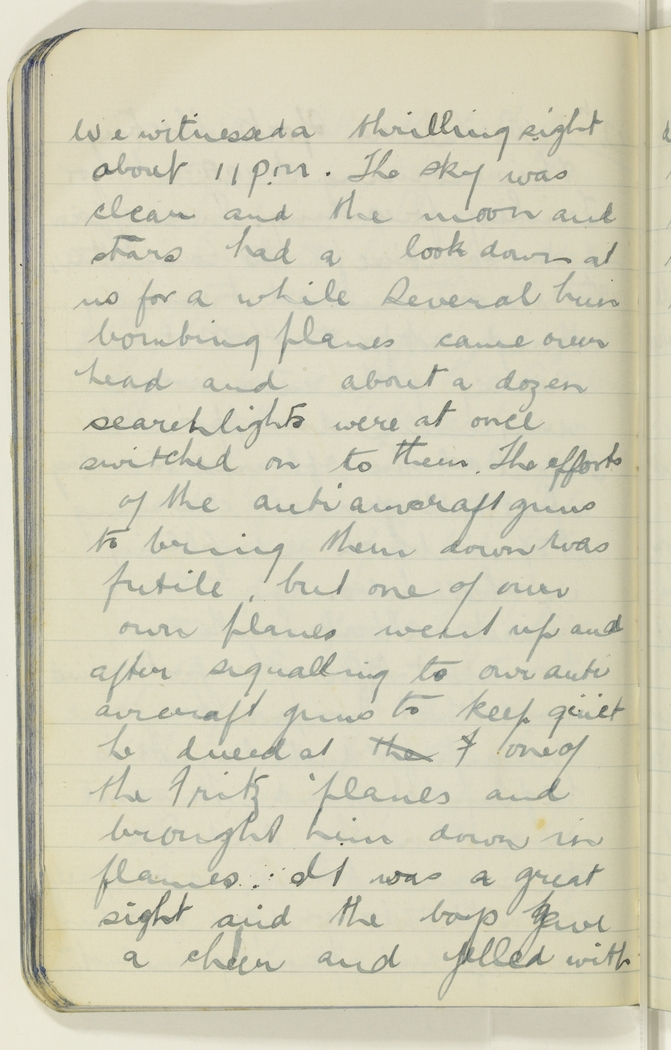 We witnessed a thrilling sight
about 11 p.m. The sky was
clear and the moon and
stars had a look down at
us for a while Several hun
bombing planes came over
head and about a dozen
searchlights were at once
switched on to them. The efforts
of the anti aircraft guns
to bring them down was
futile, but one of our
own planes went up and
after signalling to our anti
aircraft guns to keep quiet
he dived at the F one of
the Fritz planes and
brought him down in
flames. It was a great
sight and the boys gave
a cheer and yelled with